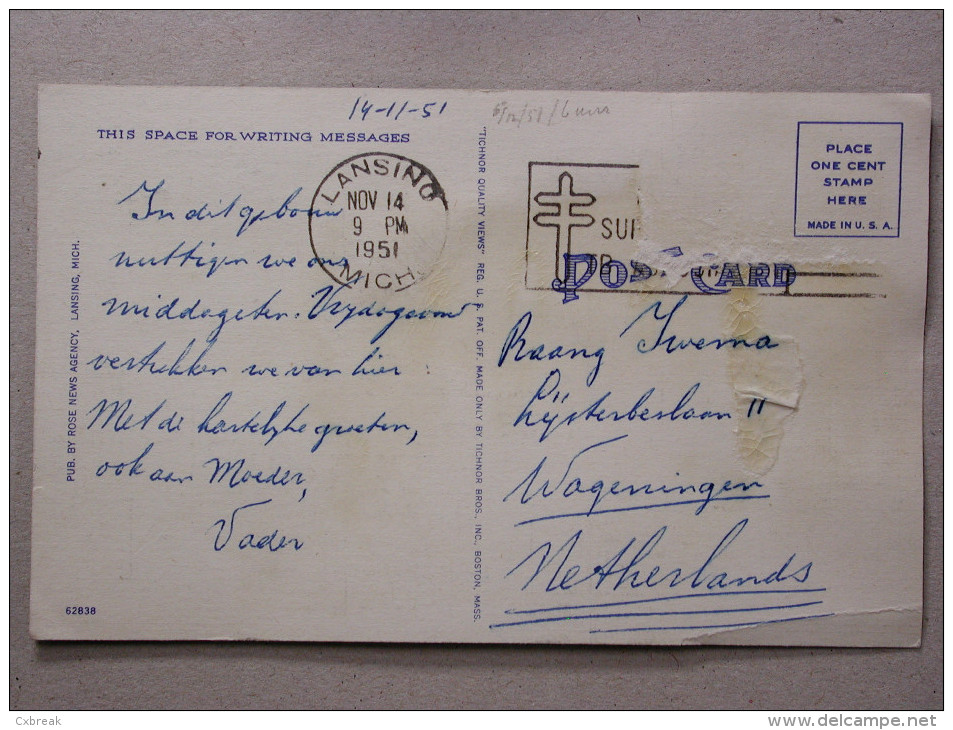 14-11-51
THIS SPACE FOR WRITING MESSAGES
LANSING
NOV 14
9 PM
1951
MICH.
In dit gebouw
nuttigen we ons
middageten. Vrijdagavond
vertrekken we van hier.
Met de hartelijke groeten,
ook aan Moeder,
Vader
62838
PUB. BY ROSE NEWS AGENCY, LANSING, MICH.
"TICHNOR QUALITY VIEWS" REG. U. S. PAT. OFF. MADE ONLY BY TICHNOR BROS., INC., BOSTON, MASS.
PLACE
ONE CENT
STAMP
HERE
MADE IN U. S. A.
POST CARD
Iwema
Lijsterbeslaan 11
Wageningen
Netherlands
Cxbreak
delcampe.net